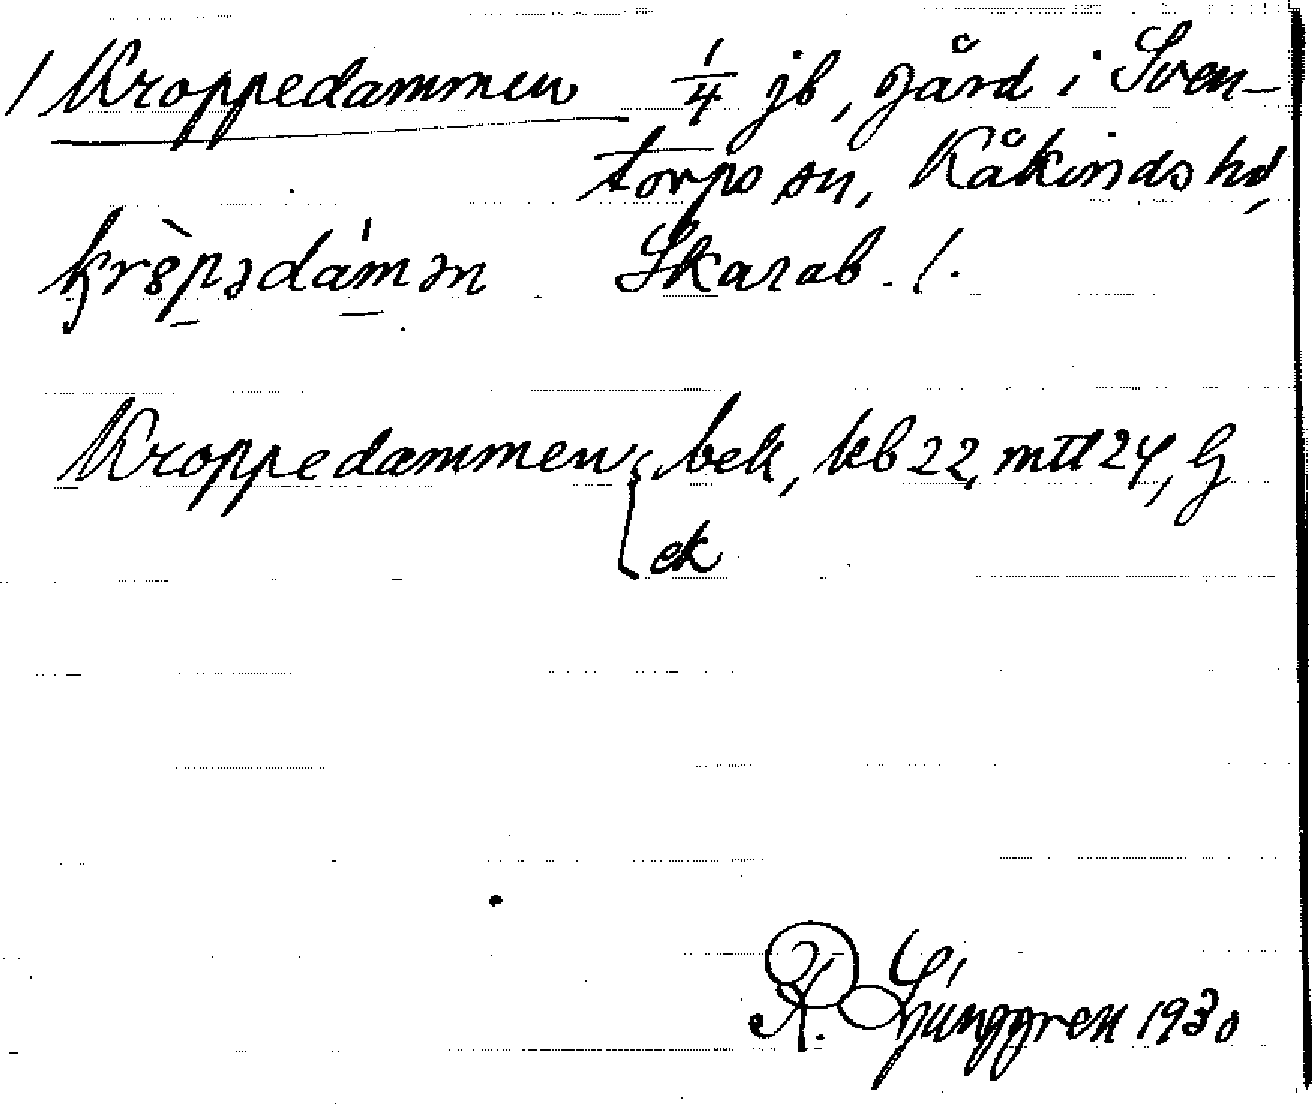 / Kroppedammen 1/4 jb, gård i Sven-
torps sn, Kåkinds hd,
kr8̀pədám ən Skarab. l.
Kroppedammen { bek, kb 22, mtl 24, G
ek
K. G. Ljunggren 1930